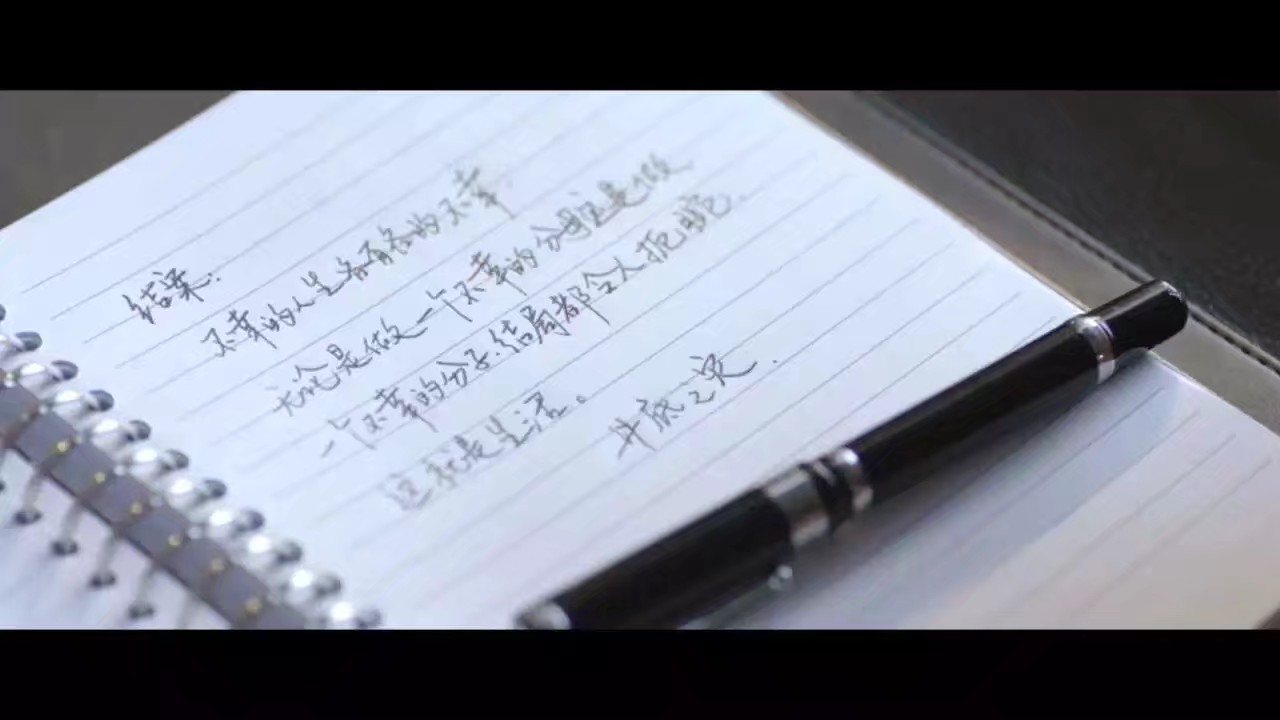 结案:
不幸的人生各有各的不幸
无论是做一个不幸的分母还是做
一个不幸的分子.结局都令人扼腕.
这就是生活。
井底之灾.